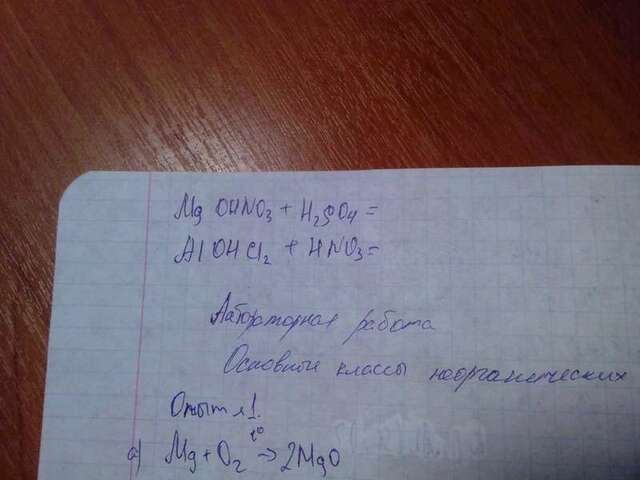 MgOHNO₃ + H₂SO₄ =
AlOHCl₂ + HNO₃ =
Лабораторная работа
Основные классы неорганических
Опыт №1.
t°
а) Mg + O₂ → 2MgO